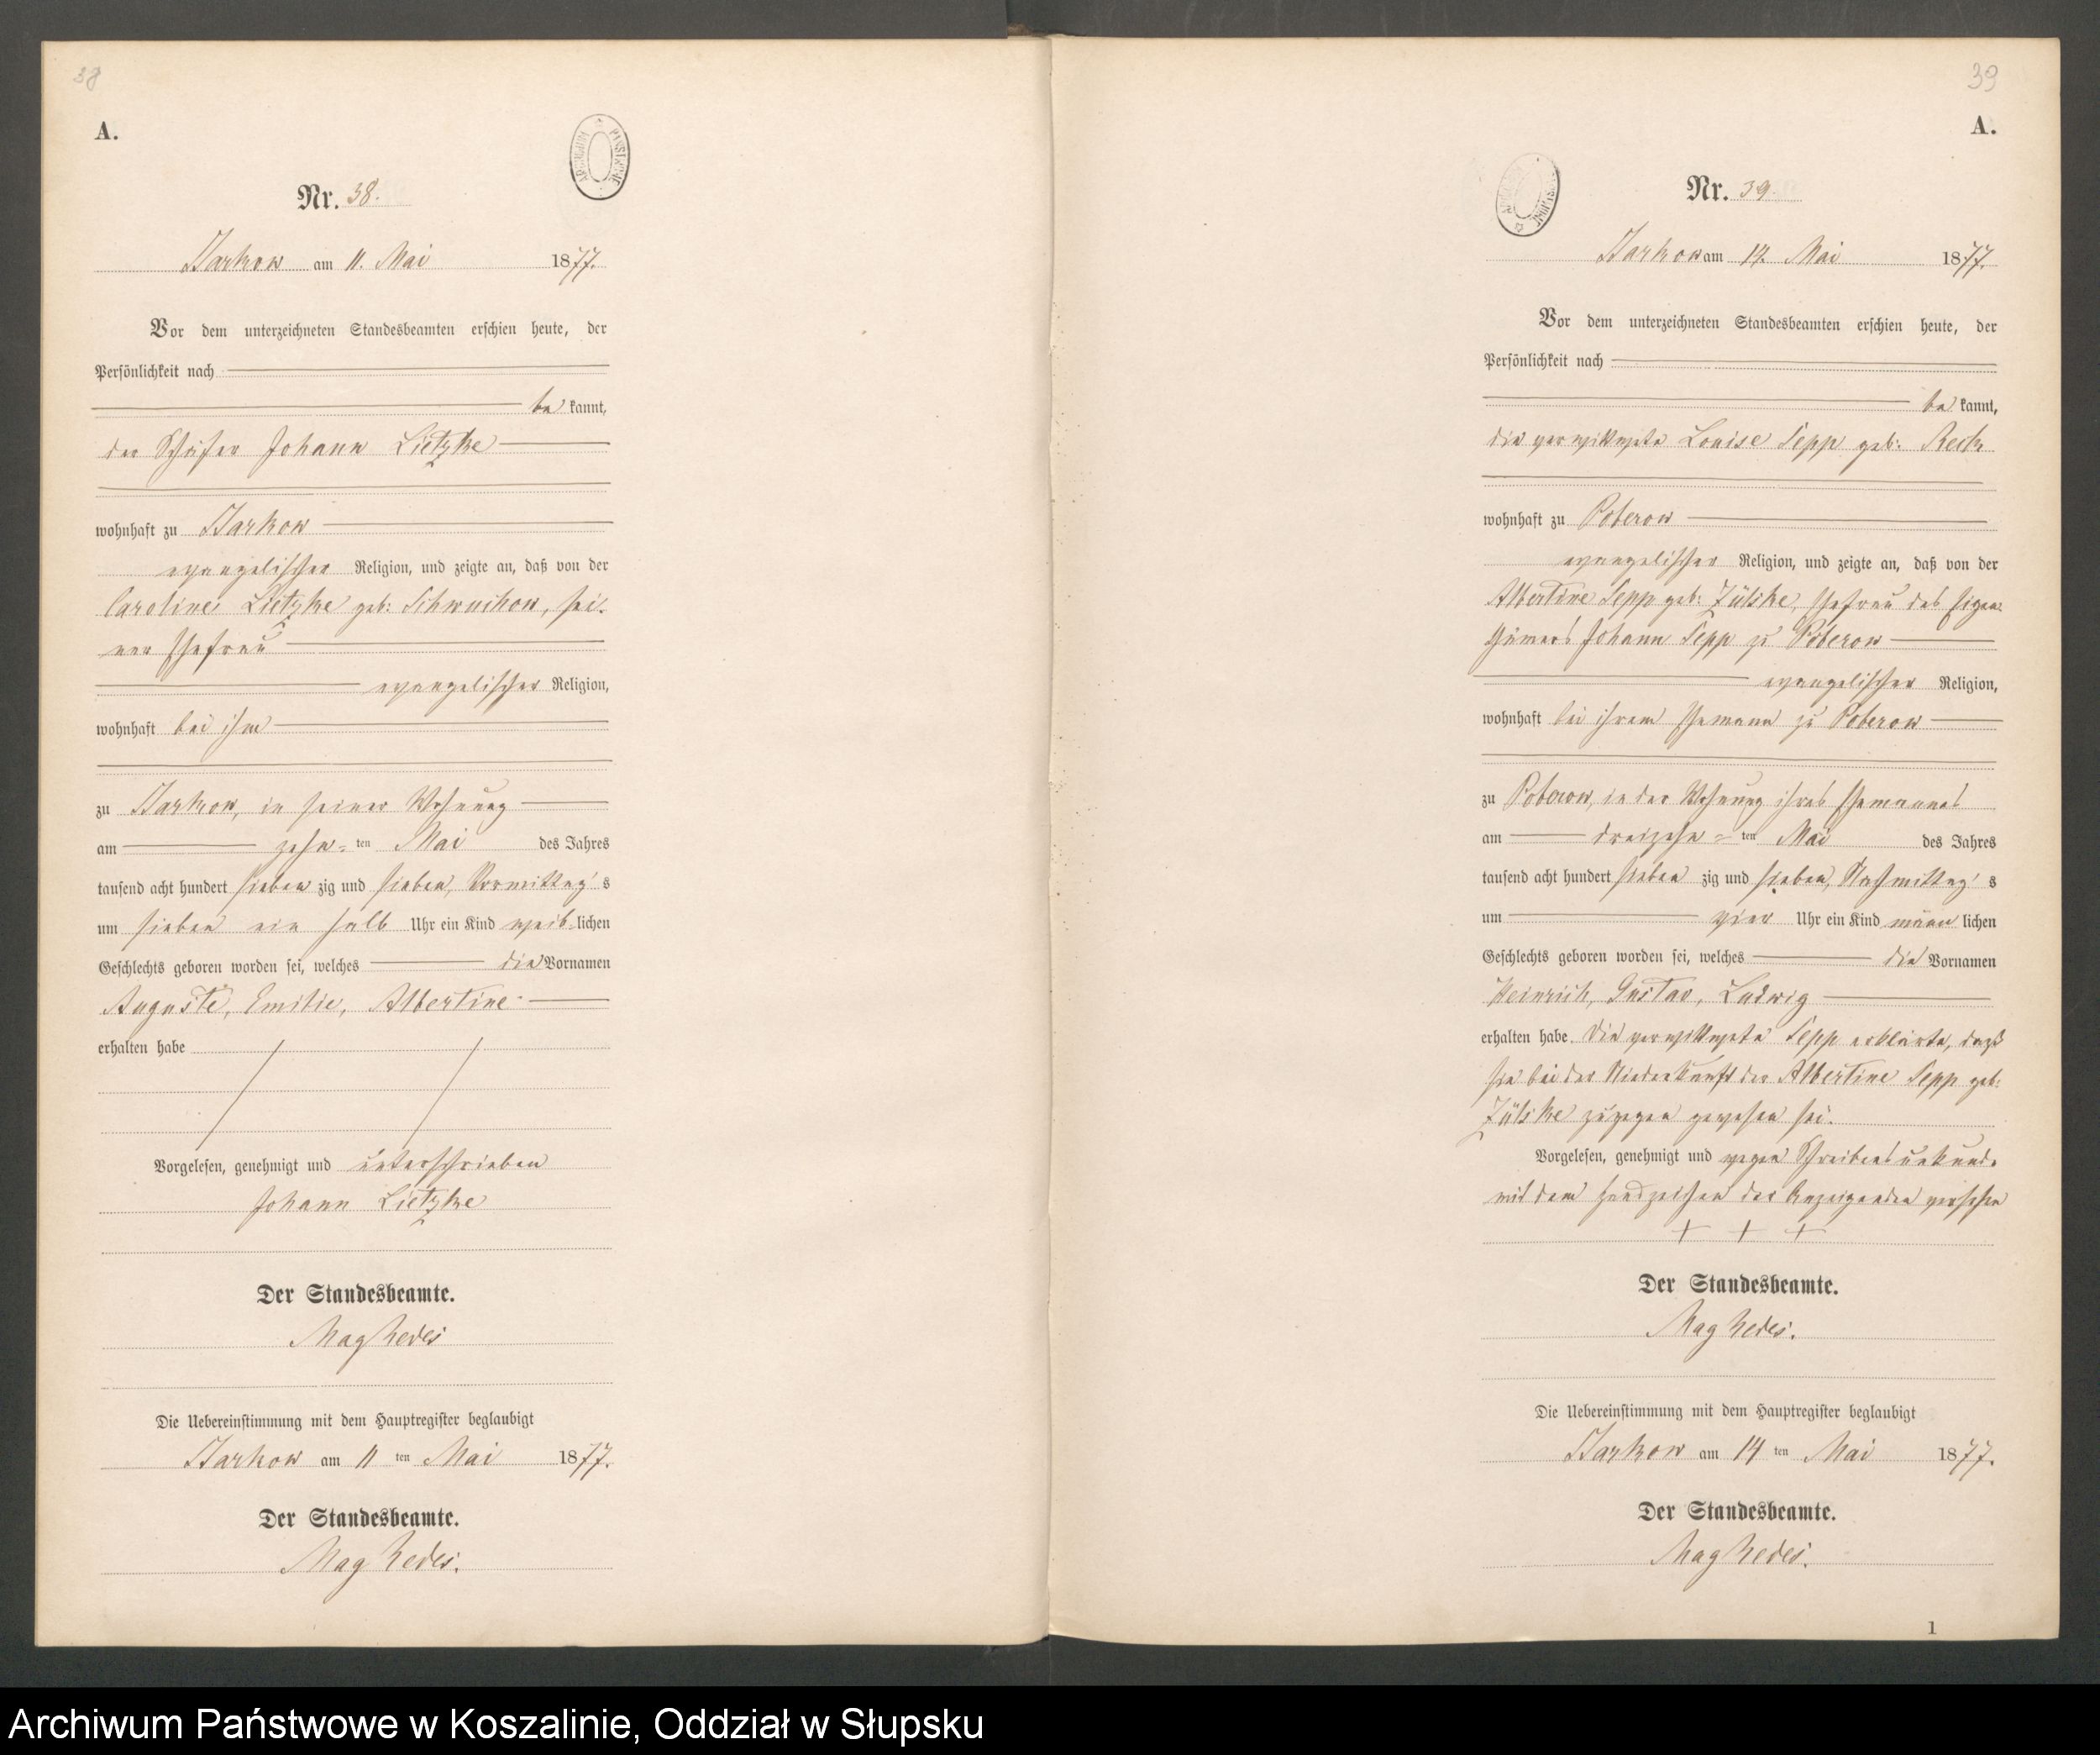 38
A.
Nr. 38.
Starkow am 11. Mai 1877.
Vor dem unterzeichneten Standesbeamten erschien heute, der
Persönlichkeit nach
be kannt,
der Schäfer Johann Lietzke
wohnhaft zu Starkow
evangelischer Religion, und zeigte an, daß von der
Caroline Lietzke geb: Schwuchow, sei-
ner Ehefrau
evangelischer Religion,
wohnhaft bei ihm
zu Starkow, in seiner Wohnung
am zehn- ten Mai des Jahres
tausend acht hundert sieben zig und sieben, Vormittag's
um sieben ein halb Uhr ein Kind weib lichen
Geschlechts geboren worden sei, welches die Vornamen
Auguste, Emilie, Albertine
erhalten habe
Vorgelesen, genehmigt und unterschrieben
Johann Lietzke
Der Standesbeamte.
Die Uebereinstimmung mit dem Hauptregister beglaubigt
Starkow am 11 ten Mai 1877.
Der Standesbeamte.
39
A.
Nr. 39
Starkow am 14. Mai 1877.
Vor dem unterzeichneten Standesbeamten erschien heute, der
Persönlichkeit nach
be kannt,
die verwittwete Louise Sepp geb: Reck
wohnhaft zu Poberow
evangelischer Religion, und zeigte an, daß von der
Albertine Sepp geb: Zülske, Ehefrau des Eigen-
thümers Johann Sepp zu Poberow
evangelischer Religion,
wohnhaft bei ihrem Ehemann zu Poberow
zu Poberow, in der Wohnung ihres Ehemannes
am dreizehn- ten Mai des Jahres
tausend acht hundert sieben zig und sieben, Nachmittag's
um vier Uhr ein Kind männ lichen
Geschlechts geboren worden sei, welches die Vornamen
Heinrich, Gustav, Ludwig
erhalten habe. Die verwittwete Sepp erklärte, daß
sie bei der Niederkunft der Albertine Sepp geb:
Zülske zugegen gewesen sei.
Vorgelesen, genehmigt und wegen Schreibensunkunde
mit dem Handzeichen der Anzeigenden versehen
+ + +
Der Standesbeamte.
Die Uebereinstimmung mit dem Hauptregister beglaubigt
Starkow am 14 ten Mai 1877.
Der Standesbeamte.
1
Archiwum Państwowe w Koszalinie, Oddział w Słupsku